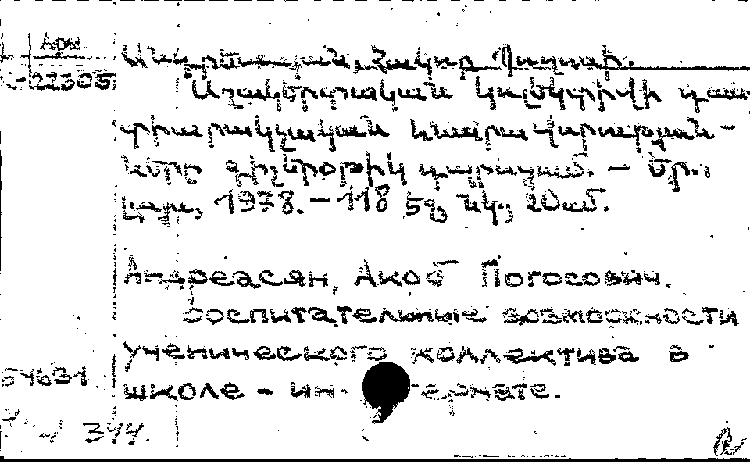 Арм
22305
Անդրեասյան, Հակոբ Պողոսի.
Աշակերտական կոլեկտիվի դաս-
տիարակչական հնարավորություն-
ները գիշերօթիկ դպրոցում. — Եր.:
Լույս, 1978. — 118 էջ, նկ.; 20սմ.
Андреасян, Акоб Погосович.
Воспитательные возможности
ученического коллектива в
школе - интернате.
344.